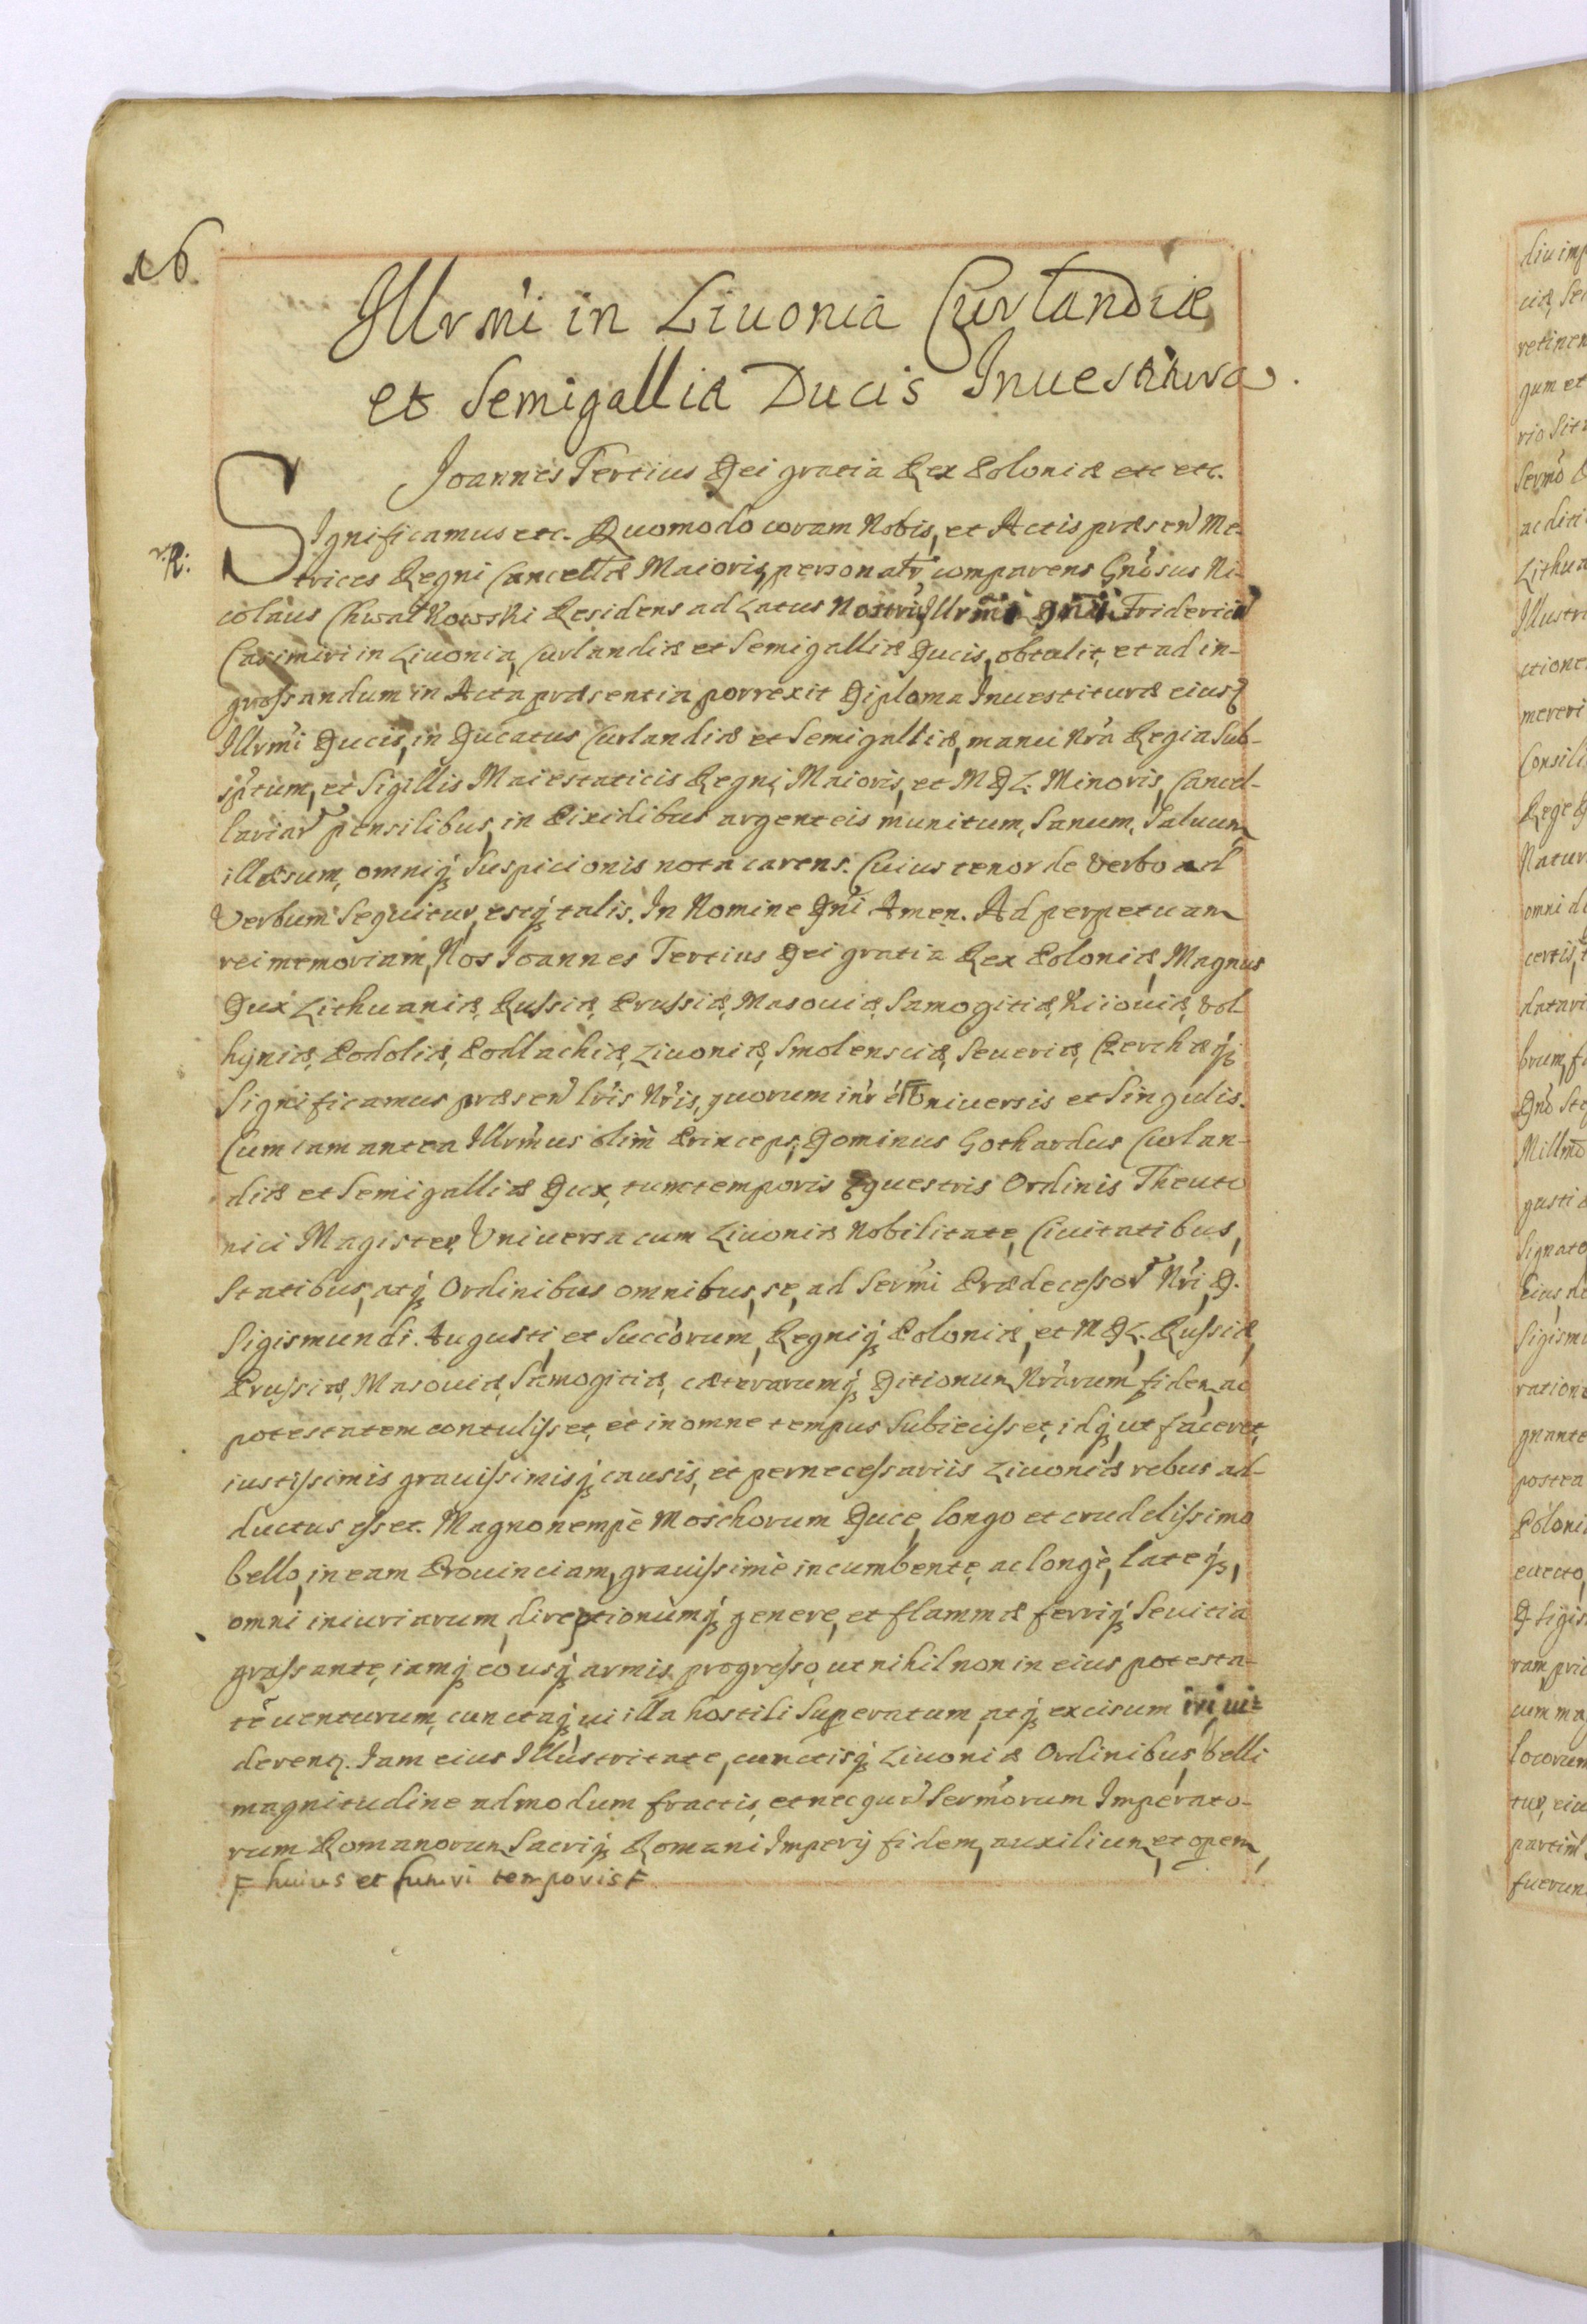 16
Illrmi in Liuonia Curlandiæ
et Semigalliæ Ducis Inuestitura.
Joannes Tertius Dei gratia Rex Poloniæ etc etc.
Significamus etc. Quomodo coram Nobis, et Actis præsen Me-
R:
trices Regni Cancellæ Maioris, personatr comparens Gnosus Ni-
colaus Chwałkowski Residens ad Latus Nostrū, Illrmi Dnii Friderici
Casimiri in Liuonia, Curlandiæ et Semigalliæ Ducis, obtulit, et ad in-
grossandum in Acta præsentia porrexit Diploma Inuestituræ eiusd
Illrmi Ducis, in Ducatus Curlandiæ et Semigalliæ, manu Nra Regia Sub-
sptum, et Sigillis Maiestaticis Regni, Maioris, et M D L. Minoris, Cancel-
lariar pensilibus, in Pixidibus argenteis munitum, Sanum, Saluum
illæsum, omniq Suspicionis nota carens. Cuius tenor de verbo ad
Verbum Sequitur, estq talis. In Nomine Dni Amen. Ad perpetuam
rei memoriam, Nos Joannes Tertius Dei gratia Rex Poloniæ, Magnus
Dux Lithuaniæ, Russiæ, Prussiæ, Masouiæ, Samogitiæ, Kiiouiæ, Vol-
hyniæ, Podoliæ, Podlachiæ, Liuoniæ, Smolensciæ, Seueriæ, Czerchæq
Significamus præsen lris Nris, quorum intr Uniuersis et Singulis.
Cum iam antea Illrmus olim Princeps, Dominus Gothardus Curlan-
diæ et Semigalliæ Dux, tunctemporis Equestris Ordinis Theuto
nici Magister, Vniuersa cum Liuoniæ Nobilitate, Ciuitatibus,
Statibus, atq Ordinibus omnibus, se, ad Sermi Prædecessor Nri, D.
Sigismundi. Augusti, et Succorum, Regniq Poloniæ, et M D L. Russiæ,
Prussiæ, Masouiæ, Samogitiæ, cæterarumq Ditionum Nrarum fidem, ac
potestatem contulisset, et in omne tempus Subiecisset, idq ut faceret,
iustissimis grauissimisq causis, et pernecessariis Liuoniæ rebus ad-
ductus esset. Magno nempè Moschorum Duce, longo et crudelissimo
bello, in eam Prouinciam, grauissimè incumbente, ac longè, lateq,
omni iniuriarum, direptionumq genere, et flammæ ferriq Seuitia
grassante, iamq eo usq armis progresso, ut nihil non in eius potesta-
tē uenturum, cunctaq, ui illa hostili Superatum, atq excisum iri, ui-
derent. Iam eius Illustritate, cunctisq Liuoniæ Ordinibus, belli
magnitudine admodum fractis, et nec Sermorum Imperato-
rum Romanorum Sacriq Romani Imperij fidem, auxilium, et opem,
F huius et futuri temporis F